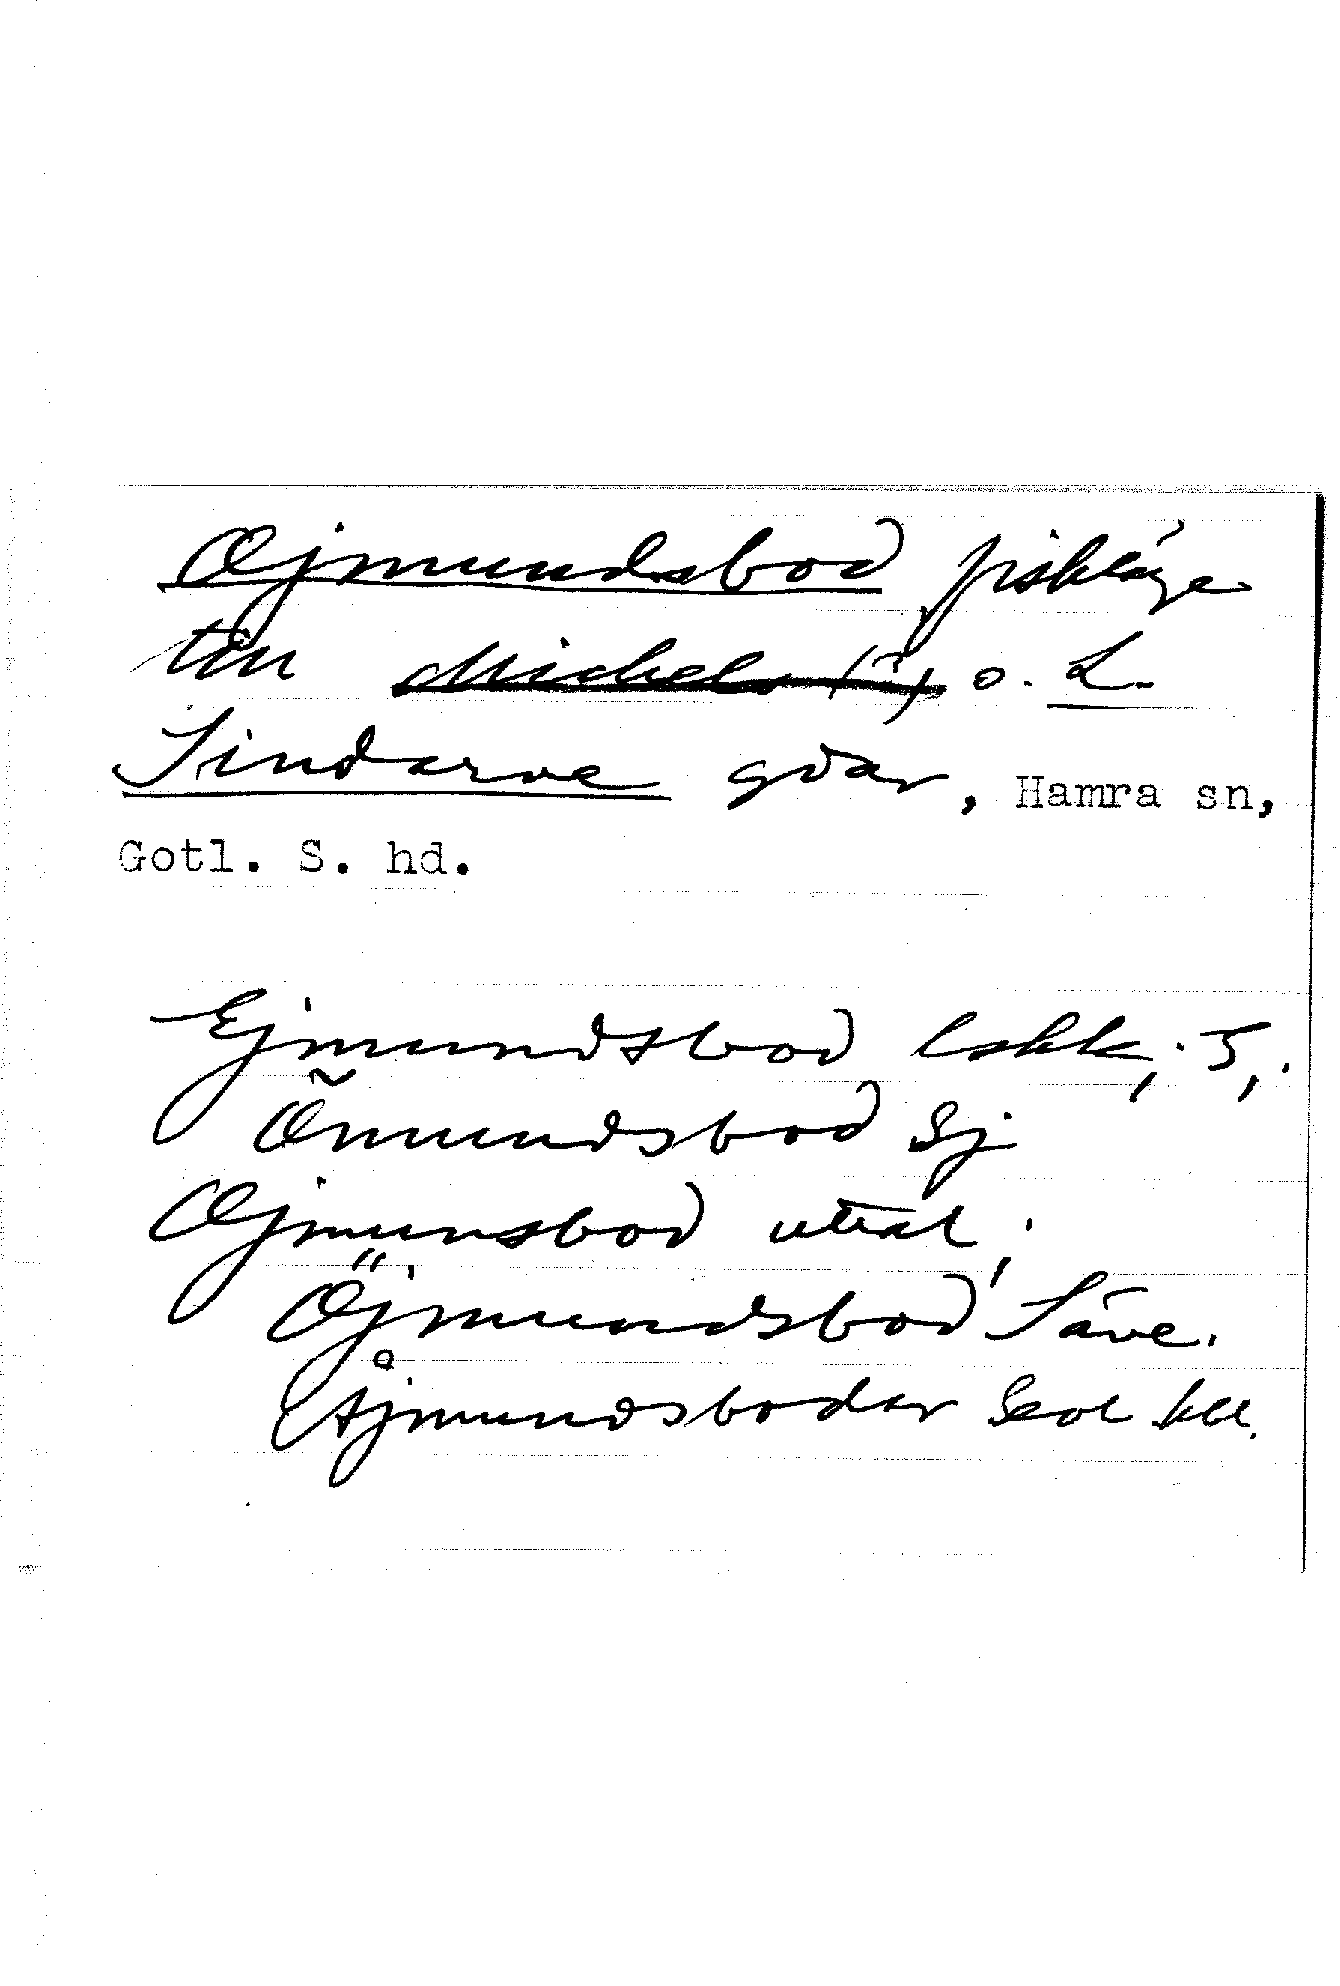 Ojmundsbod fiskläge
till Michels (?) o. L.
Sindarve gdar, Hamra sn,
Gotl. S. hd.
Ejmundsbod lskk; 5,.
Õmundsbod Sj
Ojmunsbod uttal;
Öjmundsbod Säve.
Åjmundsbodar Geol kbl.